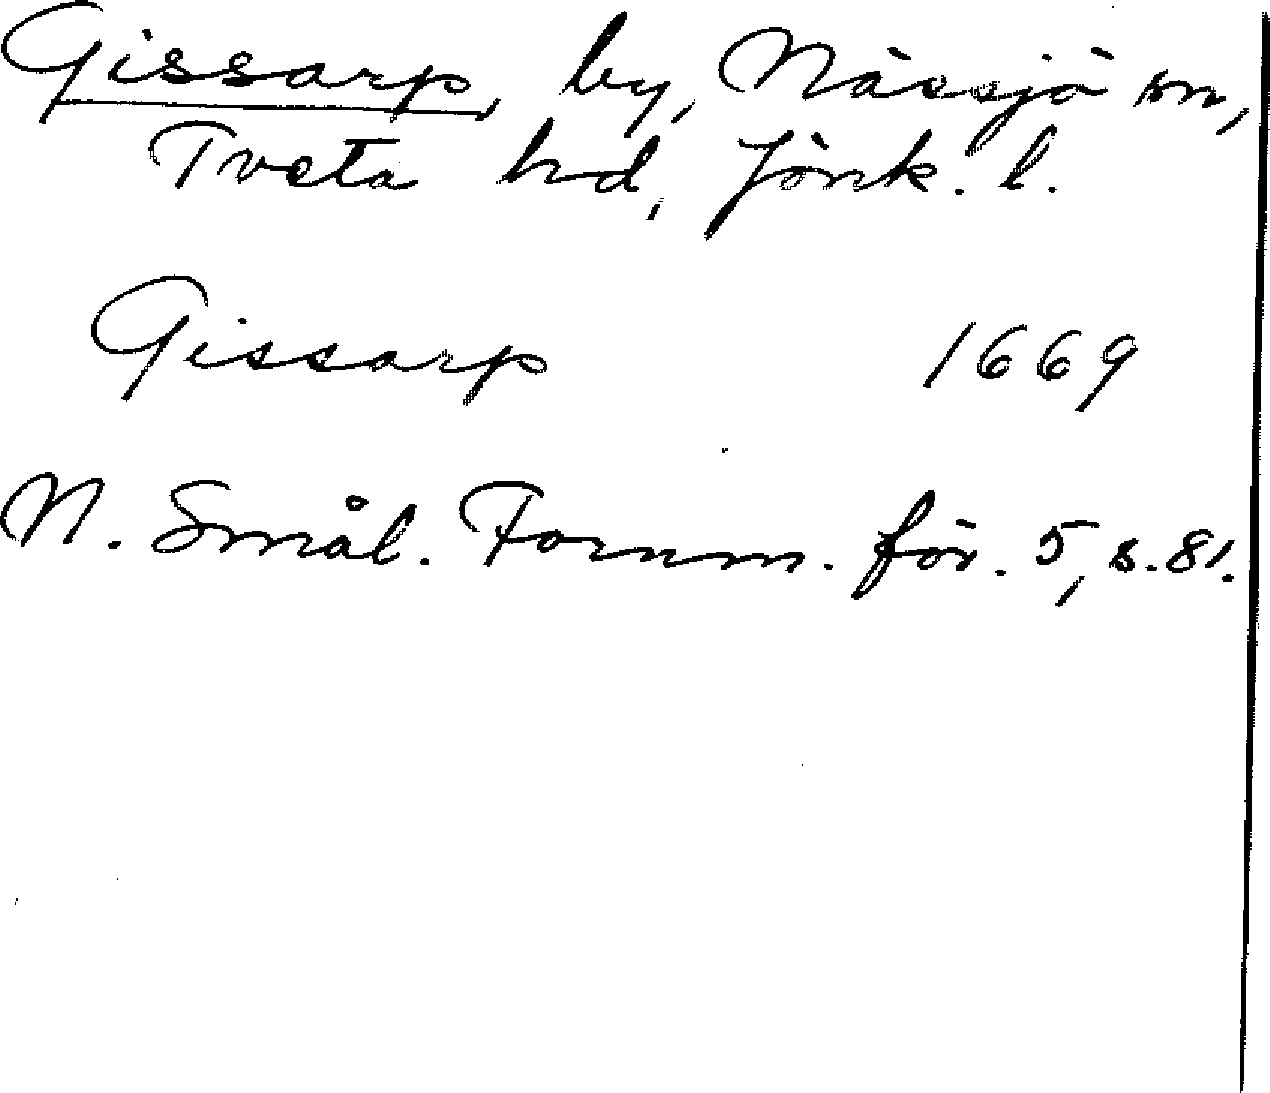 Gissarp, by, Nässjö sn,
Tveta hd, Jönk. l.
Gissarp 1669
N. Smål. Fornm. för. 5, s. 81.